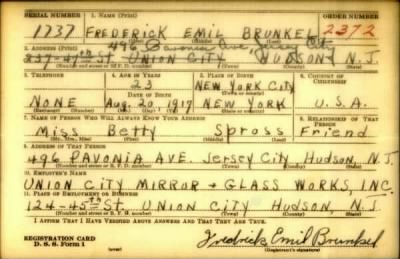 SERIAL NUMBER 1. NAME (Print) ORDER NUMBER
1737 FREDERICK EMIL BRUNKEL 2372
496 Pavonia Ave. Jersey City
2. ADDRESS (Print)
337-47th St. UNION CITY HUDSON N.J.
3. TELEPHONE 4. AGE IN YEARS 5. PLACE OF BIRTH 6. COUNTRY OF CITIZENSHIP
23 NEW YORK CITY
DATE OF BIRTH
NONE Aug. 20, 1917 NEW YORK U.S.A.
7. NAME OF PERSON WHO WILL ALWAYS KNOW YOUR ADDRESS 8. RELATIONSHIP OF THAT PERSON
Miss Betty Spross Friend
(Mr., Mrs., Miss) (First) (Middle) (Last)
9. ADDRESS OF THAT PERSON
496 PAVONIA AVE. Jersey City Hudson, N.J.
(Number and street or R. F. D. number) (Town) (County) (State)
10. EMPLOYER'S NAME
UNION CITY MIRROR + GLASS WORKS, INC.
11. PLACE OF EMPLOYMENT OR BUSINESS
124-45th St. UNION CITY HUDSON, N.J.
(Number and street or R. F. D. number) (Town) (County) (State)
I AFFIRM THAT I HAVE VERIFIED ABOVE ANSWERS AND THAT THEY ARE TRUE.
REGISTRATION CARD
D. S. S. Form 1
Fredrick Emil Brunkel
(Registrant's signature)